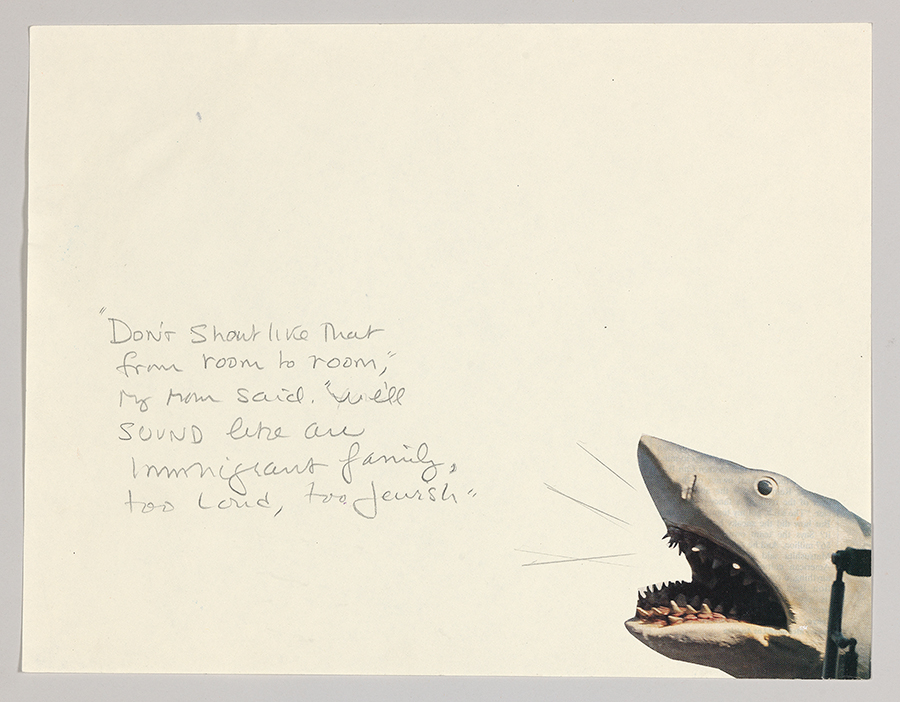 "Don't Shout like That
from room to room,"
my mom said. "We'll
SOUND like an
Immigrant family,
too Loud, too Jewish"